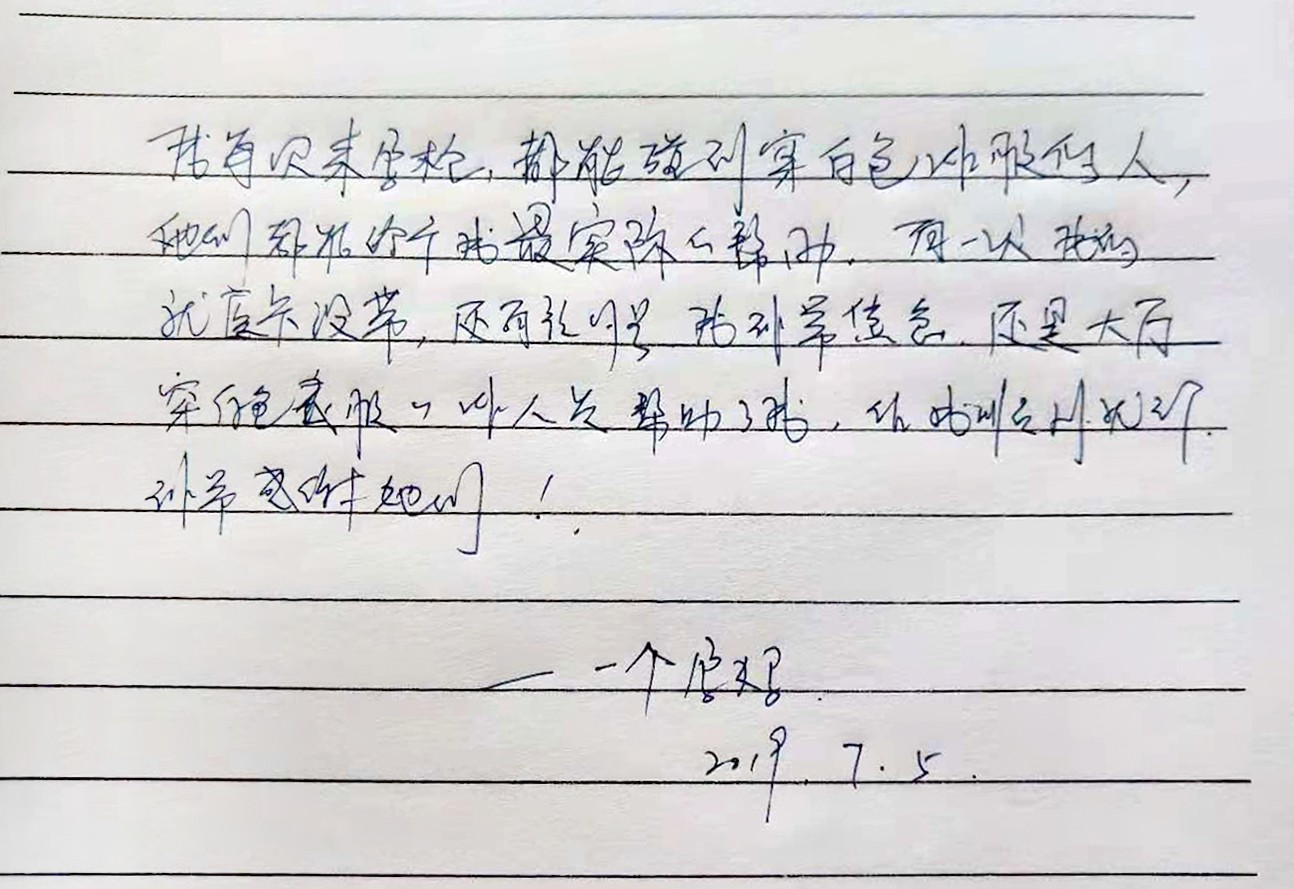 我每次来医枪,都能碰到穿白色外服的人,
他们都能给予我最实际的帮助.有一次我的
就医卡没带,还有挂号 我非常着急.还是大厅
穿白色衣服的 人员帮助了我,让我及时就诊.
非常感谢她们!
——一个患者
2019.7.5.